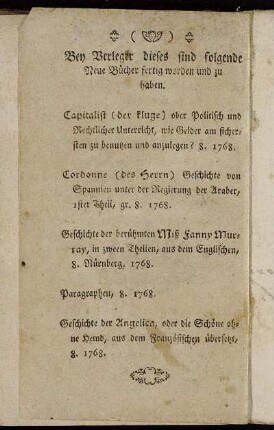 Bey Verleger dieses sind folgende
Neue Bücher fertig worden und zu
haben.
Capitalist (der kluge) oder Politisch und
Rechtlicher Unterricht, wie Gelder am sicher-
sten zu benutzen und anzulegen? 8. 1768.
Cordonne (des Herrn) Geschichte von
Spannien unter der Regierung der Araber,
1ster Theil, gr. 8. 1768.
Geschichte der berühmten Miß Fanny Mur-
ray, in zween Theilen, aus dem Englischen,
8. Nürnberg, 1768.
Paragraphen, 8. 1768.
Geschichte der Angelica, oder die Schöne oh-
ne Hemd, aus dem Französischen übersetzt,
8. 1768.